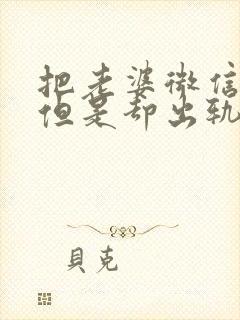 把老婆微信
但是却出轨
貝克